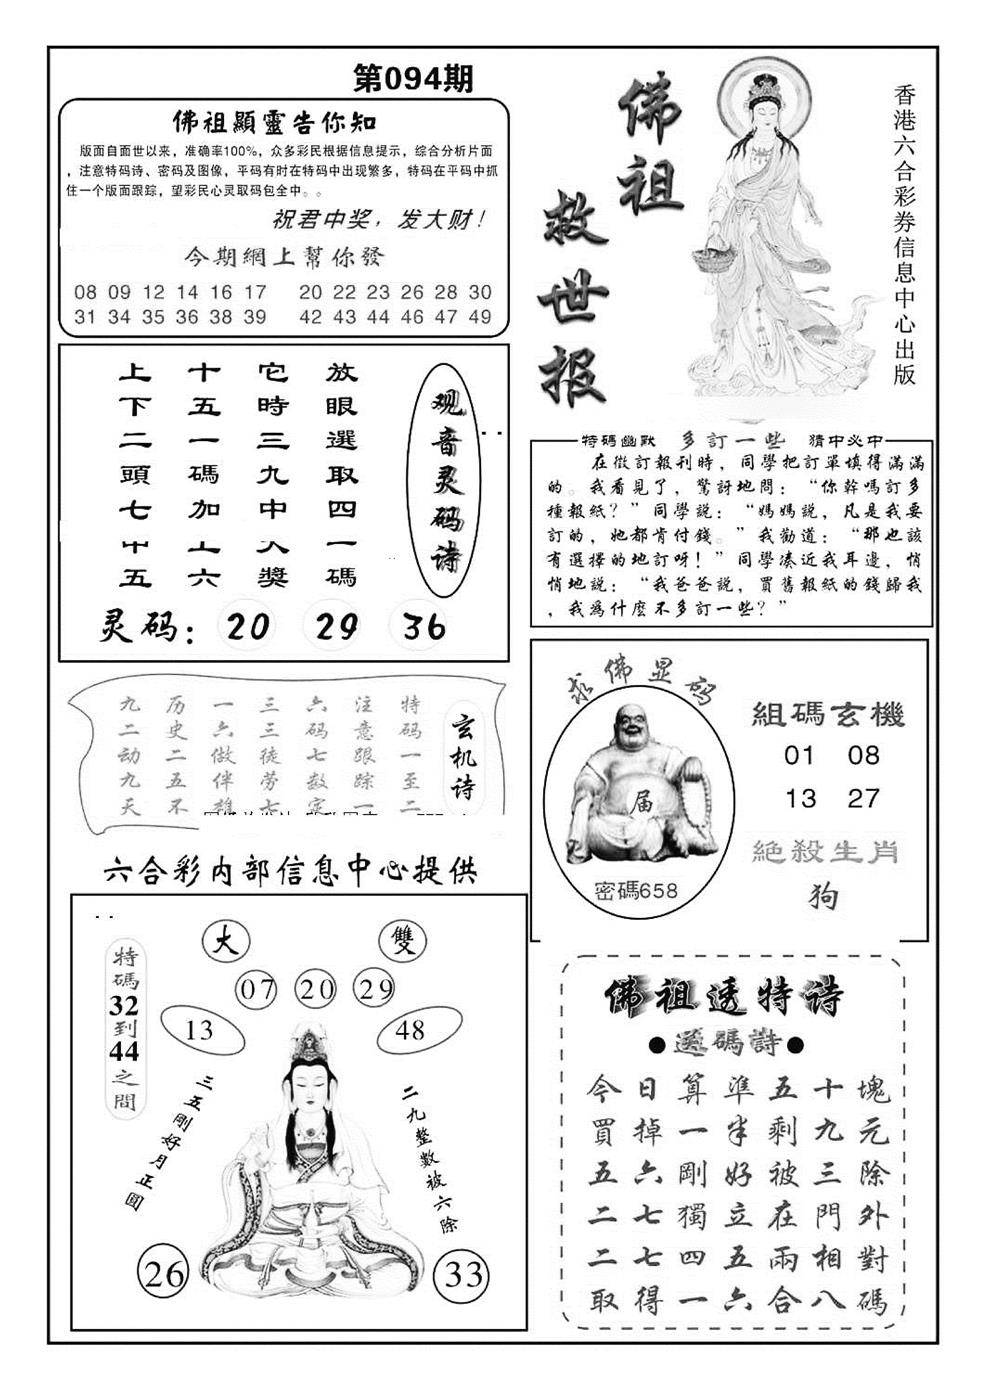 第094期
佛祖顯靈告你知
版面自面世以来，准确率100%，众多彩民根据信息提示，综合分析片面
，注意特码诗、密码及图像，平码有时在特码中出现繁多，特码在平码中抓
住一个版面跟踪，望彩民心灵取码包全中。。
祝君中奖，发大财！
今期網上幫你發
08 09 12 14 16 17 20 22 23 26 28 30
31 34 35 36 38 39 42 43 44 46 47 49
佛祖
救世报
香港六合彩券信息中心出版
观音灵码诗
放眼選取四一碼
它時三九中人獎
十五一碼加上六
上下二頭七中五
灵码：20 29 36
特碼幽默 多訂一些 猜中必中
在徵訂報刊時，同學把訂單填得滿滿
的。我看見了，驚訝地問：“你幹嗎訂多
種報紙？”同學説：“媽媽説，凡是我要
訂的，她都肯付錢。”我勸道：“那也該
有選擇的地訂呀！”同學湊近我耳邊，悄
悄地説：“我爸爸説，買舊報紙的錢歸我
，我爲什麼不多訂一些？”
玄机诗
特码一至二
注意跟踪一
六码七数定
三三徒劳七
一六做伴雄
历史二五不
九二动九天
求佛显码
届
密碼658
組碼玄機
01 08
13 27
絕殺生肖
狗
六合彩内部信息中心提供
特碼32到44之間
大
雙
07 20 29
13
48
三五剛好月正圓
二九整數被六除
26
33
佛祖透特诗
●送碼詩●
今日算準五十塊
買掉一半剩九元
五六剛好被三除
二七獨立在門外
二七四五兩相對
取得一六合八碼